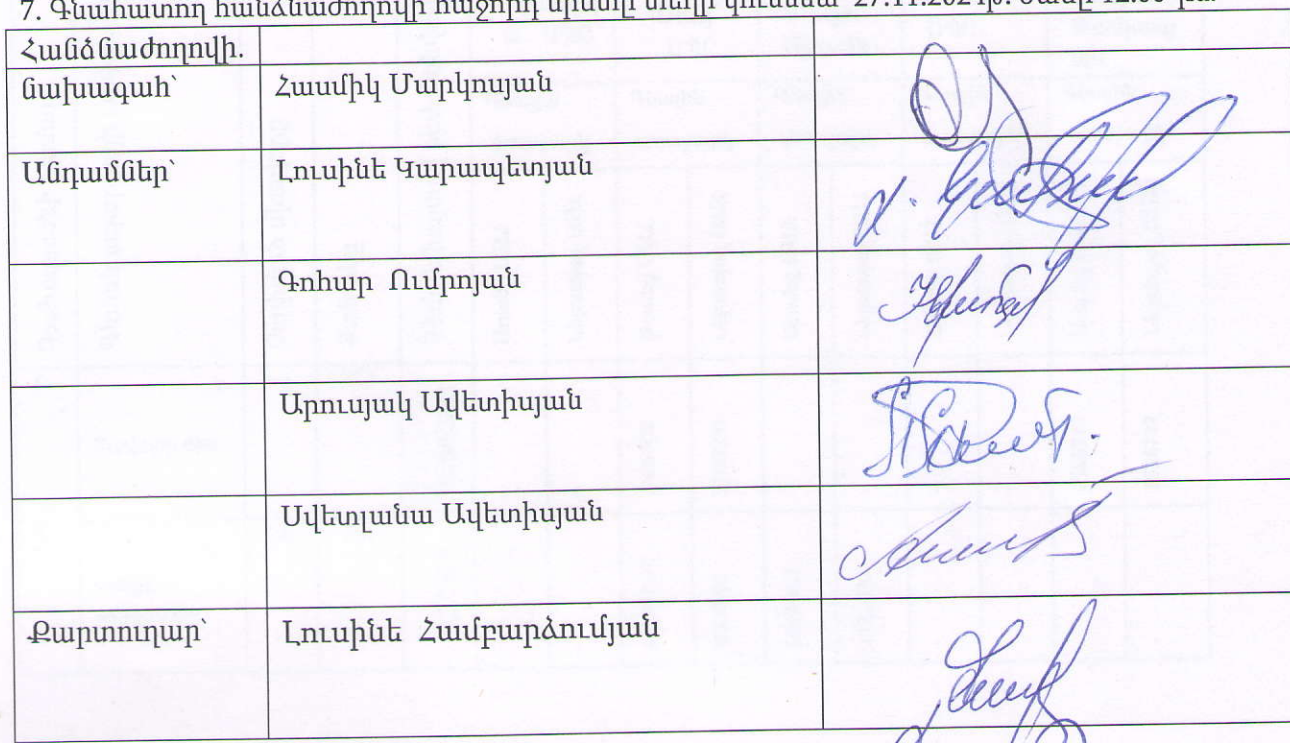 7. Գնահատող հանձնաժողովի հաջորդ նիստը տեղի կունենա 27.11.2024թ. ժամը 12:00-
Հանձնաժողովի.
նախագահ՝ Հասմիկ Մարկոսյան
Անդամներ՝ Լուսինե Կարապետյան
Գոհար Ումրոյան
Արուսյակ Ավետիսյան
Սվետլանա Ավետիսյան
Քարտուղար՝ Լուսինե Համբարձումյան